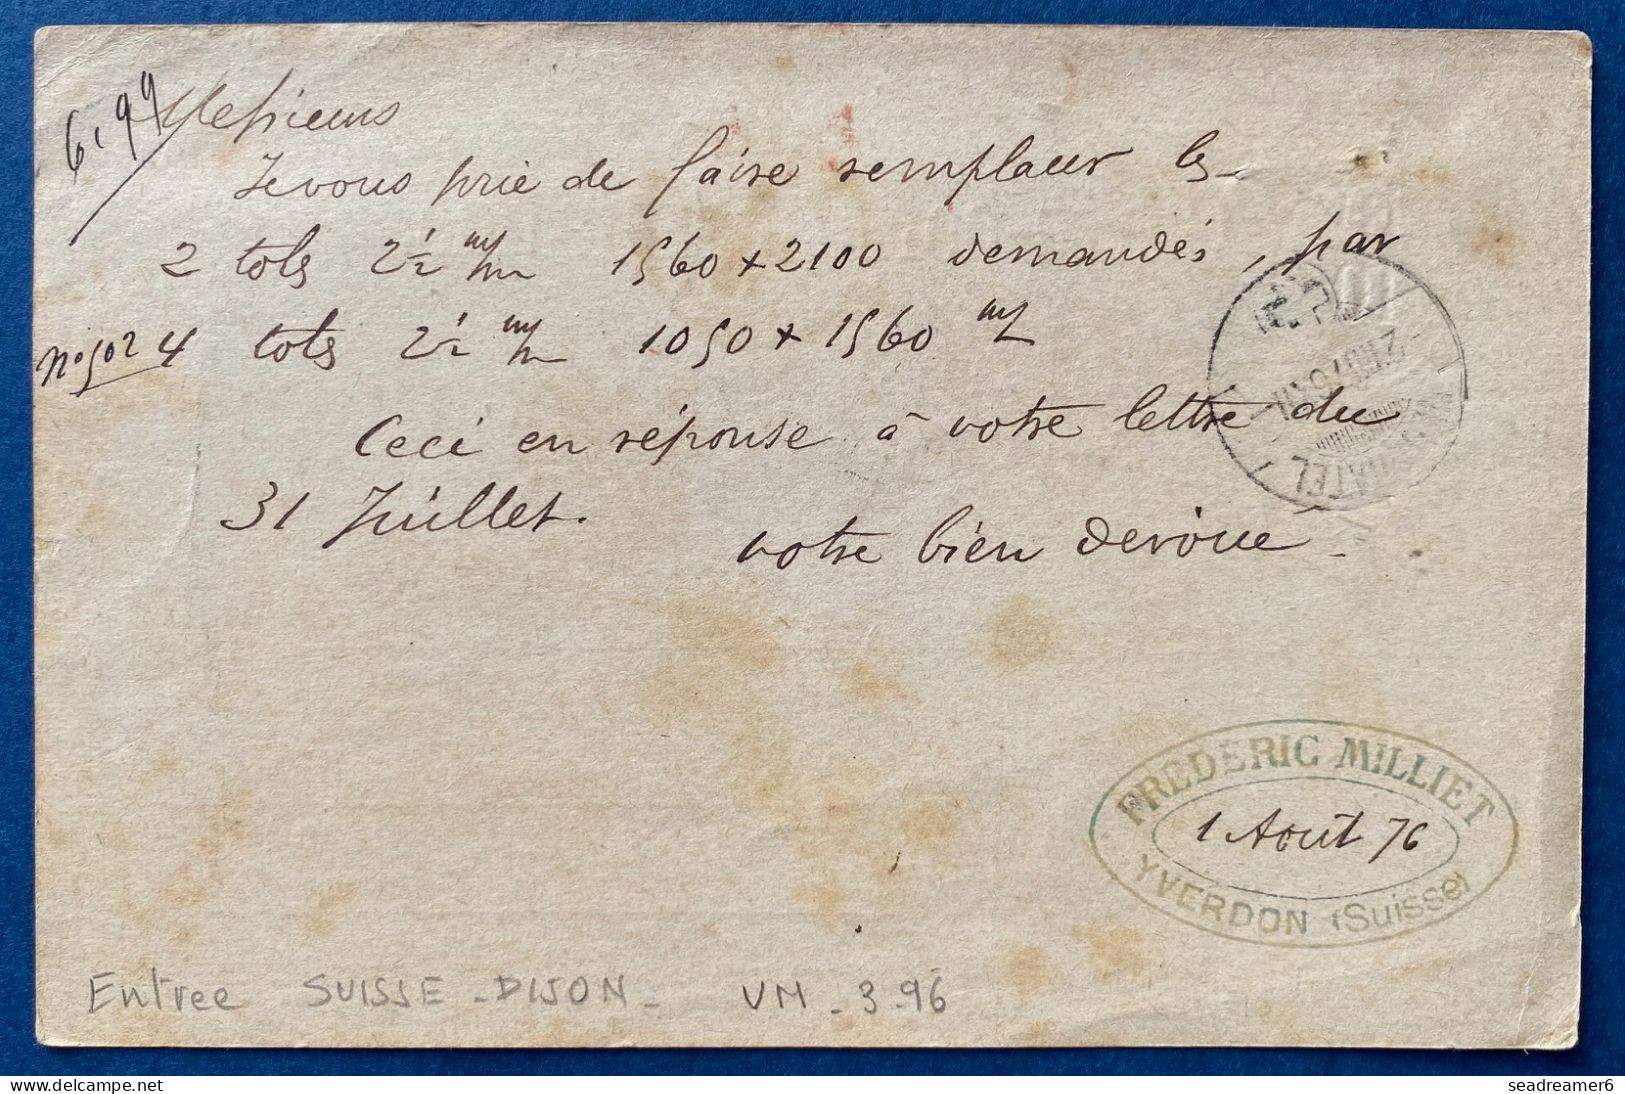 6,99
Messieurs
Je vous prie de faire remplacer les
2 tols 2 1/2 m/m 1560 x 2100 demandés, par
n° 502 4 tols 2 1/2 m/m 1050 x 1560 m/
Ceci en réponse à votre lettre du
31 Juillet.
votre bien devoué
FREDERIC MILLIET
1 Août 76
YVERDON (Suisse)
Entree SUISSE - DIJON - VM - 3 - 96
seadreamer6